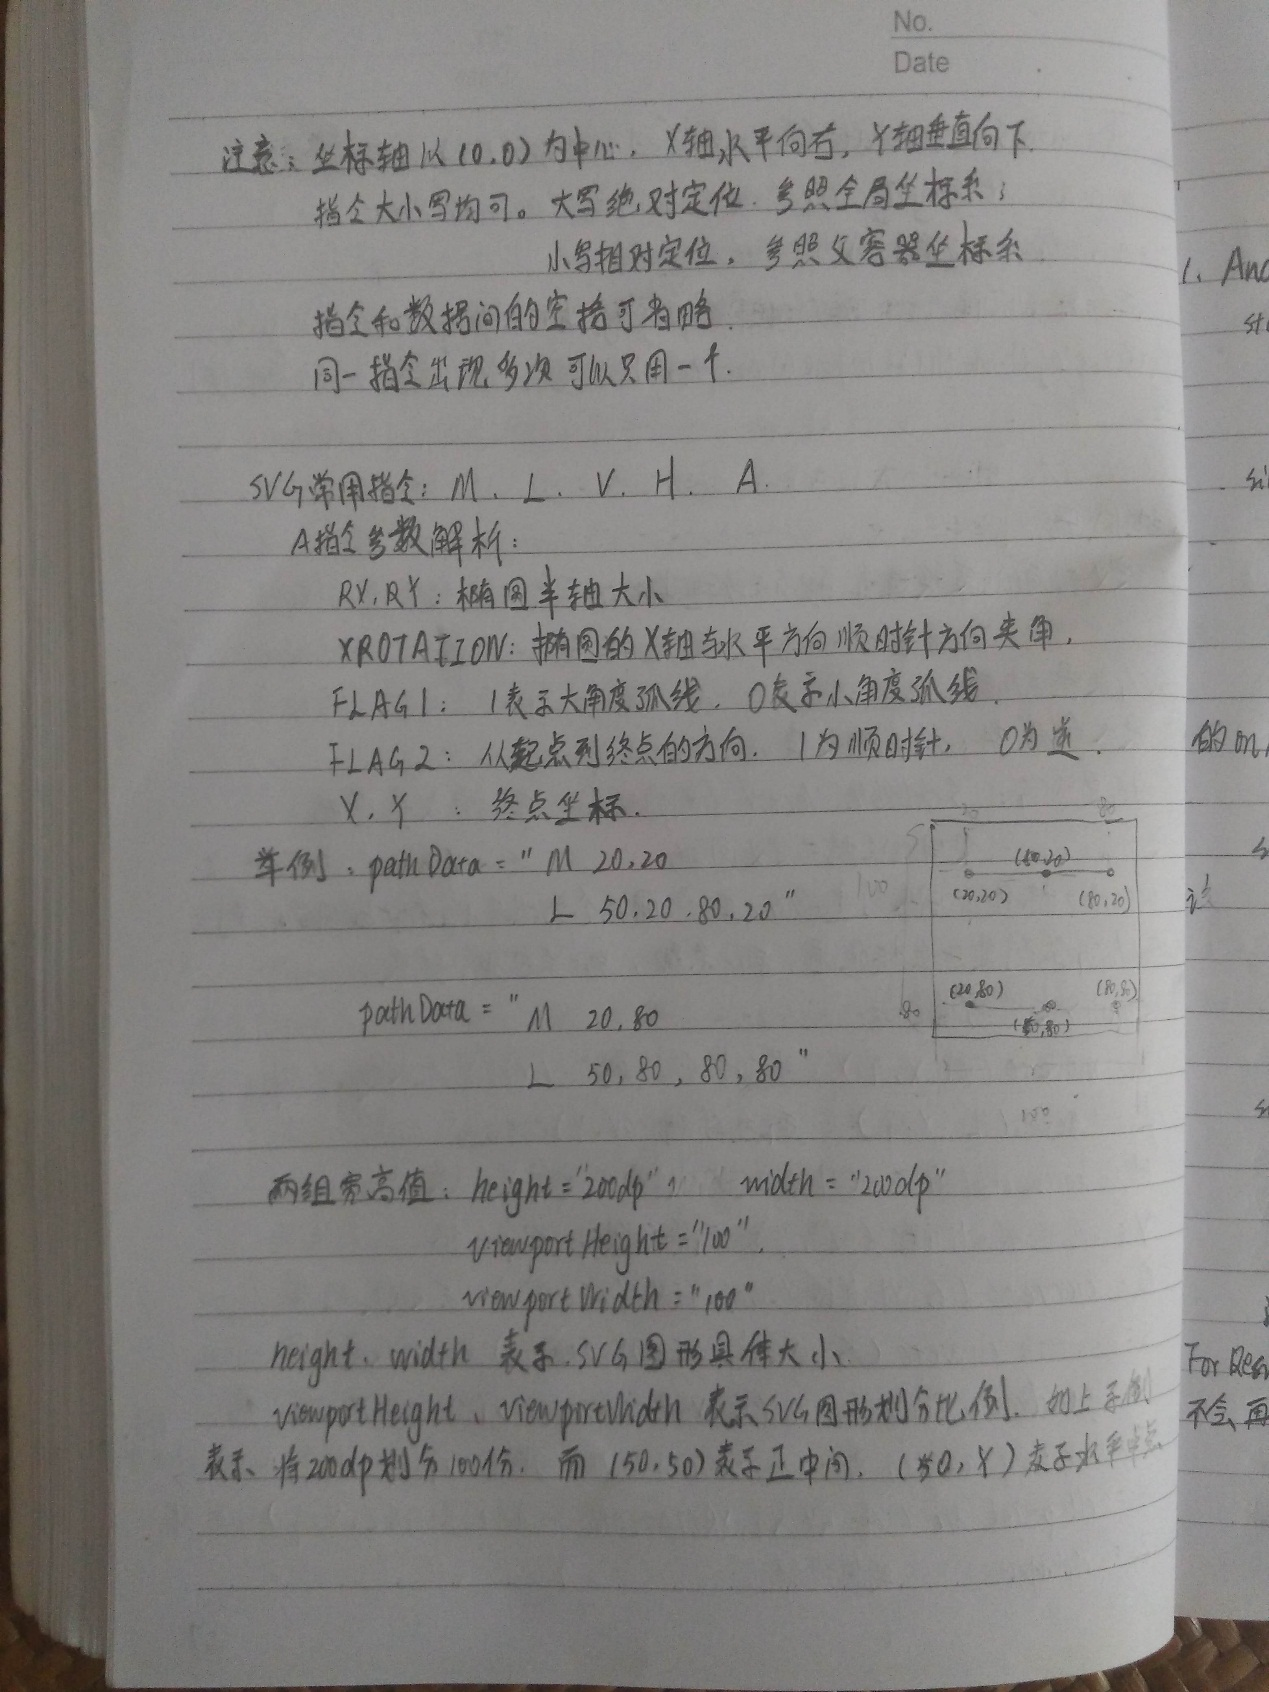 No.
Date
注意：坐标轴以(0,0)为中心，X轴水平向右，Y轴垂直向下.
指令大小写均可。大写绝对定位.参照全局坐标系；
小写相对定位，参照父容器坐标系
指令和数据间的空格可省略.
同一指令出现多次可以只用一个.
SVG常用指令：M、L、V、H、A.
A指令参数解析：
RX,RY：椭圆半轴大小
XROTATION：椭圆的X轴与水平方向顺时针方向夹角,
FLAG1：1表示大角度弧线，0表示小角度弧线.
FLAG2：从起点到终点的方向.1为顺时针，0为逆.
X,Y：终点坐标.
举例：pathData="M 20,20
L 50,20,80,20"
pathData="M 20,80
L 50,80,80,80"
20 80
(20,20) (80,20)
100
(20,80) (80,80)
80
100
两组宽高值：height="200dp", width="200dp"
viewportHeight="100".
viewportWidth="100"
height、width 表示SVG图形具体大小
viewportHeight、viewportWidth 表示SVG图形划分比例.如上示例
表示将200dp划分100份.而(50,50)表示正中间.(50,Y)表示水平中点
1. And
的on
For Res
不会再